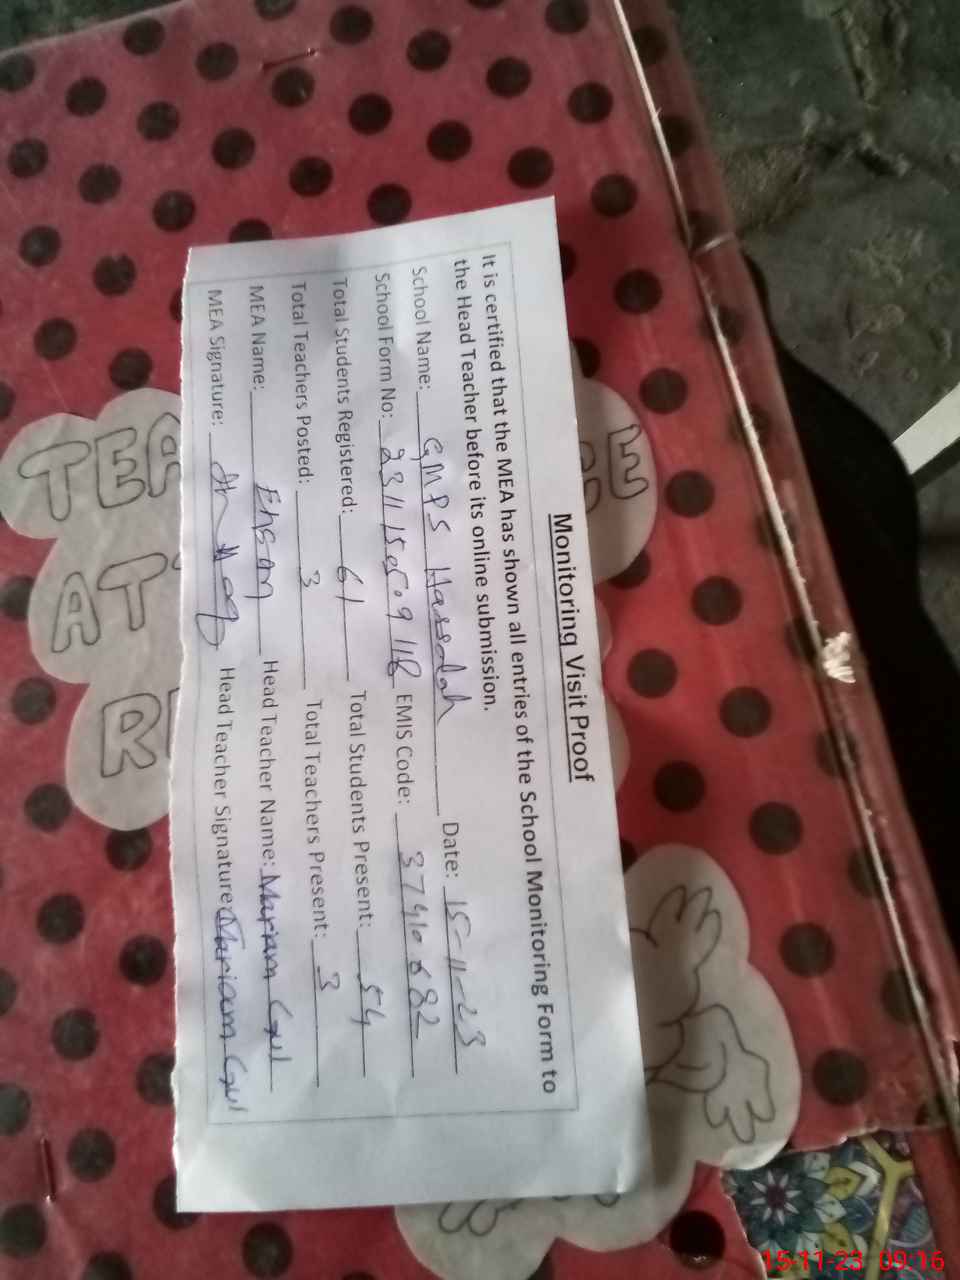 Monitoring Visit Proof
It is certified that the MEA has shown all entries of the School Monitoring Form to
the Head Teacher before its online submission.
School Name: GMPS Hassolah Date: 15-11-23
School Form No: EMIS Code: 37410682
Total Students Registered: 61 Total Students Present: 54
Total Teachers Posted: 3 Total Teachers Present: 3
MEA Name: Ehsan Head Teacher Name: Mariam Gul
MEA Signature: Head Teacher Signature: Mariam Gul
TEA
AT
R
15-11-23 09:16